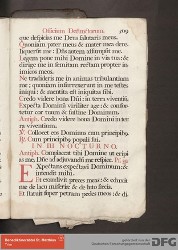 Officium Defunctorum. 309
que despicias me Deus salutaris meus.
Quoniam pater meus & mater mea dere-
liquerunt me: Dñs autem assumpsit me.
Legem pone mihi Domine in via tua: &
dirige me in semitam rectam propter in-
imicos meos.
Ne tradideris me in animas tribulantium
me: quoniam insurrexerunt in me testes
iniqui; & mentita est iniquitas sibi.
Credo videre bona Dñi: in terra viventiũ.
Expecta Dominũ viriliter age: & confor-
tetur cor tuum & sustine Dominum.
Antiph. Credo videre bona Domini in ter-
ra viventium.
℣. Collocet eos Dominus cum principibȝ.
℟. Cum principibȝ populi sui.
IN III NOCTURNO
Antiph. Complaceat tibi Domine ut eripi-
as me, Dñe ad adjuvandũ me respice. Ps. 39
Expectans expectavi Dominum: &
intendit mihi.
Et exaudivit preces meas: & eduxit
me de lacu miseriæ & de luto fæcis.
Et statuit super petram pedes meos: & di-
DFG